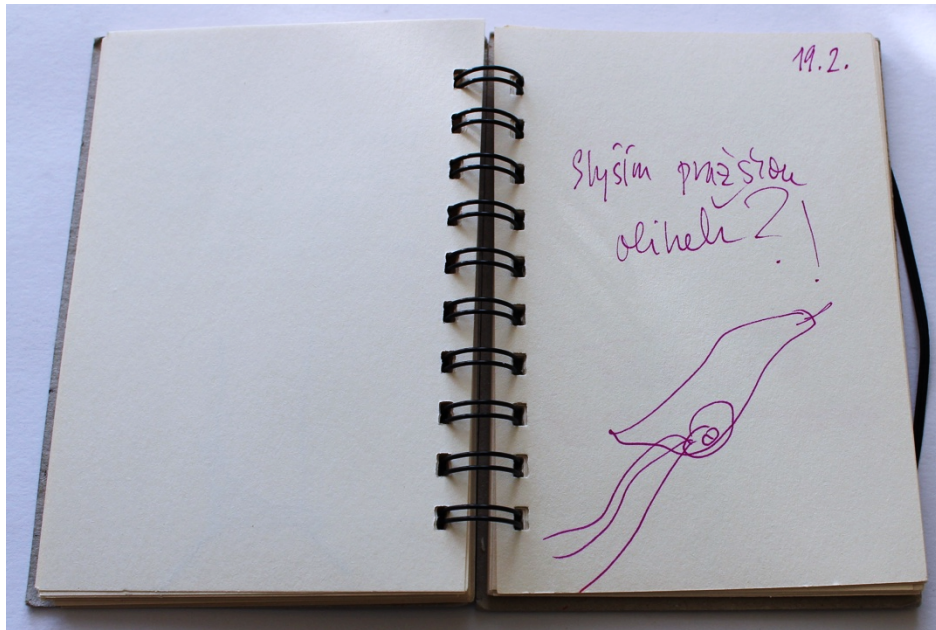 19.2.
Slyším pražskou
oliheň?!